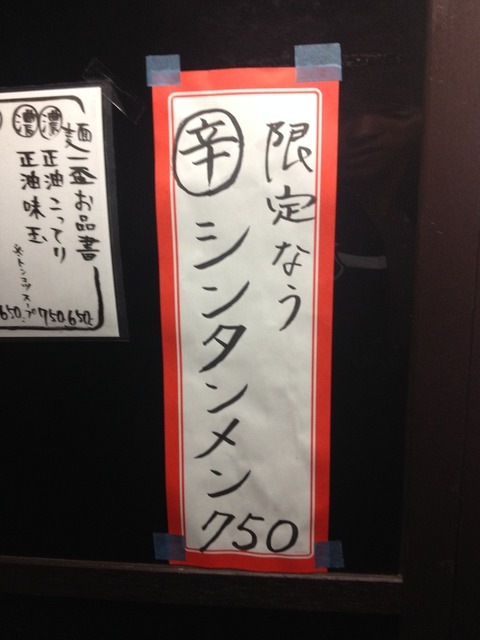 限定なう
辛 シンタンメン 750
麺一盃お品書
濃 正油こってり 650
※トンコツスープ
濃 正油味玉 750